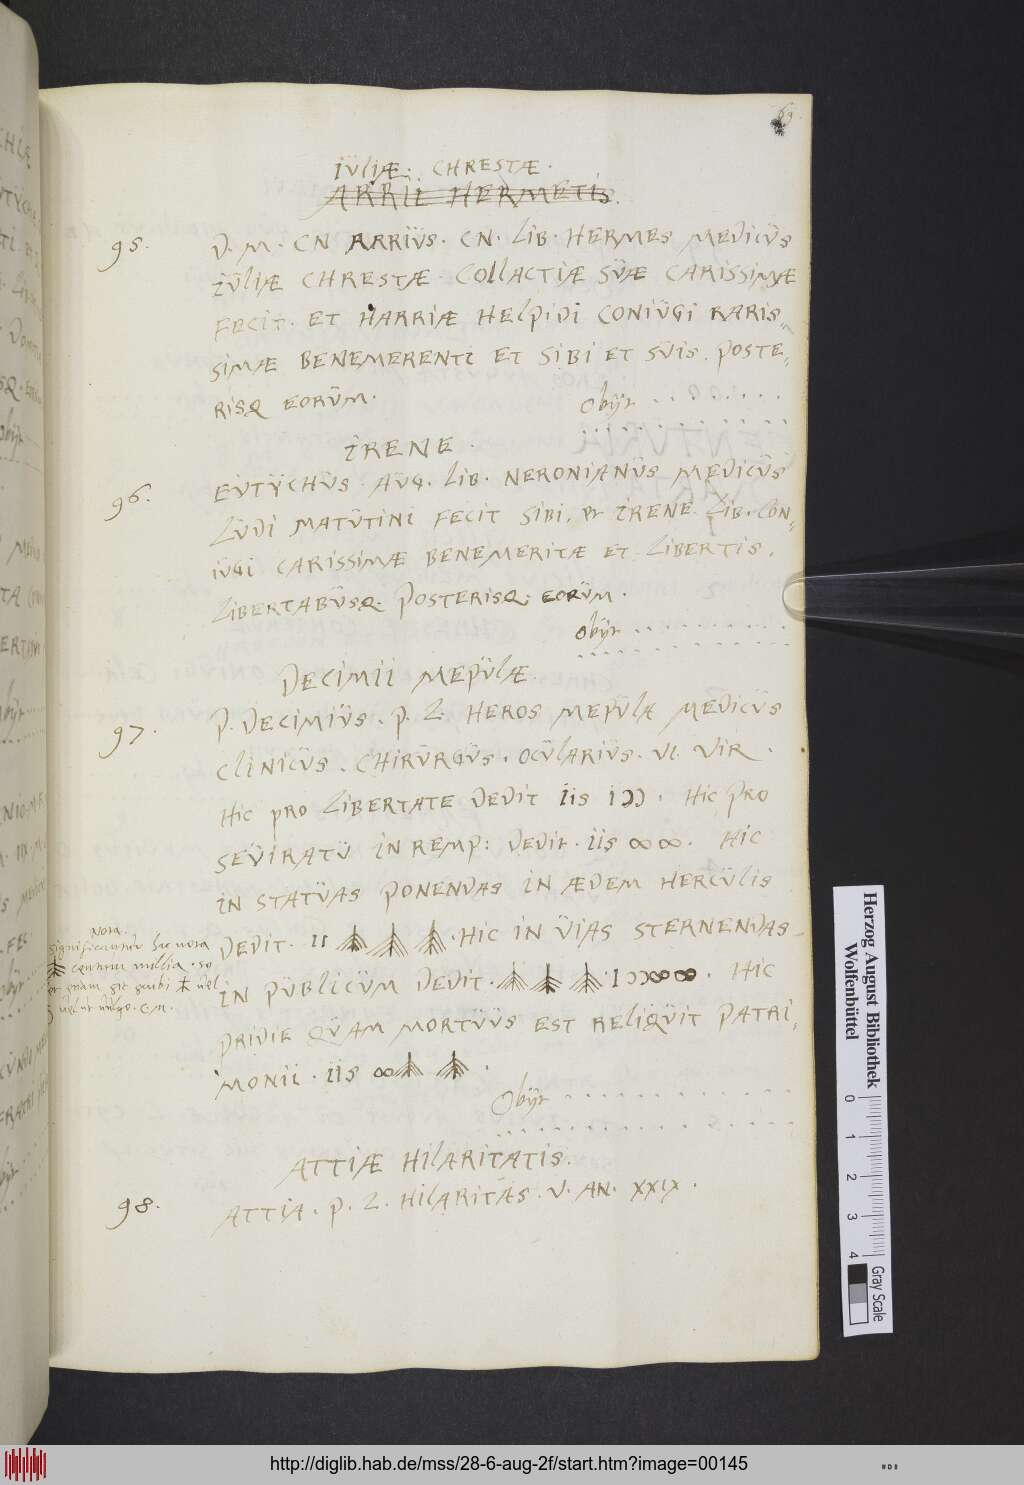 69.
IULIÆ. CHRESTÆ.
ARRII HERMETIS.
95. D. M. CN ARRIUS. CN. LIB. HERMES MEDICUS
IULIÆ CHRESTÆ. COLLACTIÆ SUÆ CARISSIMÆ
FECIT. ET HARRIÆ HELPIDI CONIUGI RARIS,,
SIMÆ BENEMERENTI ET SIBI ET SUIS. POSTE,,
RISQ EORUM.
Obijt . . . . . . . .
. . . . . . . . . . . .
IRENE.
96. EUTYCHUS. AUG. LIB. NERONIANUS MEDICUS
LUDI MATUTINI FECIT SIBI. et IRENE LIB. CON,,
IUGI CARISSIMÆ BENEMERITÆ ET LIBERTIS.
LIBERTABUSQ. POSTERISQ. EORUM.
obijt . . . . . . . . .
. . . . . . . . . . . .
DECIMII MEPULÆ.
97. P. DECIMIUS. P. L. HEROS MEPULÆ MEDICUS
CLINICUS. CHIRURGUS. OCULARIUS. VI. VIR.
HIC PRO LIBERTATE DEDIT IIS IↃↃ. HIC PRO
SEUIRATU IN REMP: DEDIT. IIS ∞ ∞. HIC
IN STATUAS PONENDAS IN ÆDEM HERCULIS
DEDIT. II . HIC IN UIAS STERNENDAS
IN PUBLICUM DEDIT. IↃↃ∞∞. HIC
PRIDIE QUAM MORTUUS EST RELIQUIT PATRI,,
MONII. IIS ∞ .
Obijt . . . . . . . . .
. . . . . . . . . . . .
nota.
significantur hac nota
centum millia.
vel
vel ut vulgo. C.M.
ATTIÆ HILARITATIS.
98. ATTIA. P. L. HILARITAS. V. AN. XXIX.
Herzog August Bibliothek
Wolfenbüttel
0 1 2 3 4
Gray Scale
http://diglib.hab.de/mss/28-6-aug-2f/start.htm?image=00145